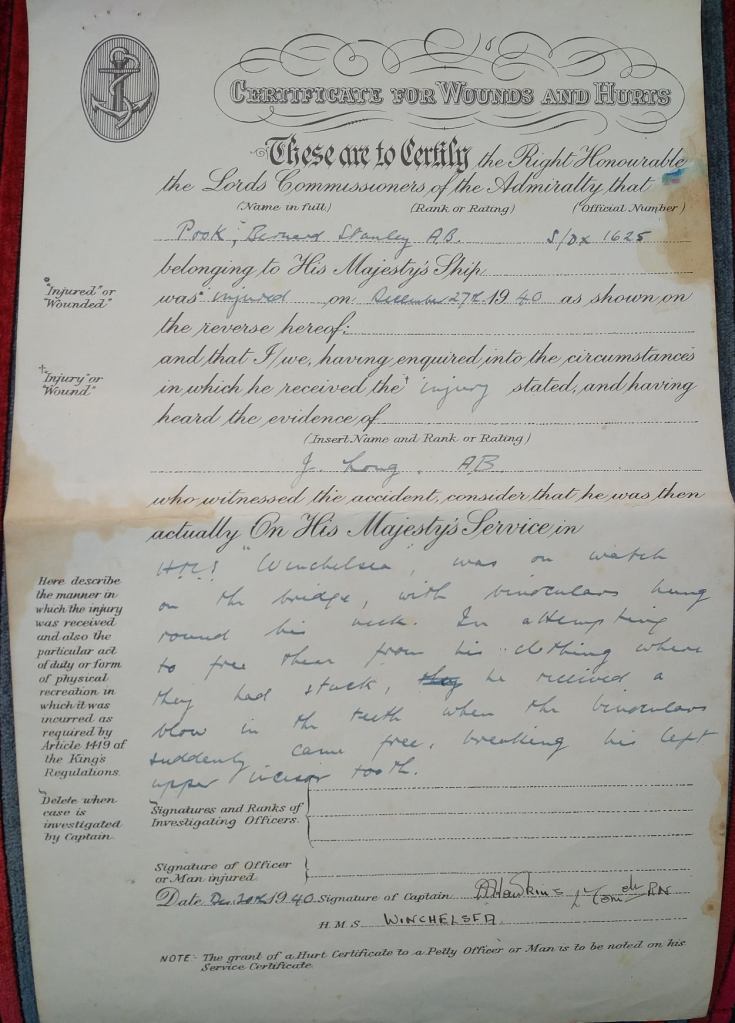 CERTIFICATE FOR WOUNDS AND HURTS
These are to Certify the Right Honourable
the Lords Commissioners of the Admiralty that
(Name in full) (Rank or Rating) (Official Number)
Pook, Bernard Stanley AB. S/DX 1625
belonging to His Majesty's Ship
"Injured" or
"Wounded"
was injured on December 27th 1940 as shown on
the reverse hereof:
and that I/we, having enquired into the circumstances
† "Injury" or
"Wound"
in which he received the † injury stated, and having
heard the evidence of
(Insert Name and Rank or Rating)
J. Long. AB
who witnessed the accident, consider that he was then
actually On His Majesty's Service in
Here describe
the manner in
which the injury
was received
and also the
particular act
of duty or form
of physical
recreation in
which it was
incurred as
required by
Article 1419 of
the King's
Regulations.
H.M.S "Winchelsea", was on watch
on the bridge, with binoculars hung
round his neck. In attempting
to free them from his clothing where
they had stuck, he received a
blow in the teeth when the binoculars
suddenly came free, breaking his left
upper incisor tooth.
Delete when
case is
investigated
by Captain.
Signatures and Ranks of
Investigating Officers.
Signature of Officer
or Man injured
Date 1940 Signature of Captain Hawkins RN
H.M.S. WINCHELSEA.
NOTE:- The grant of a Hurt Certificate to a Petty Officer or Man is to be noted on his
Service Certificate.